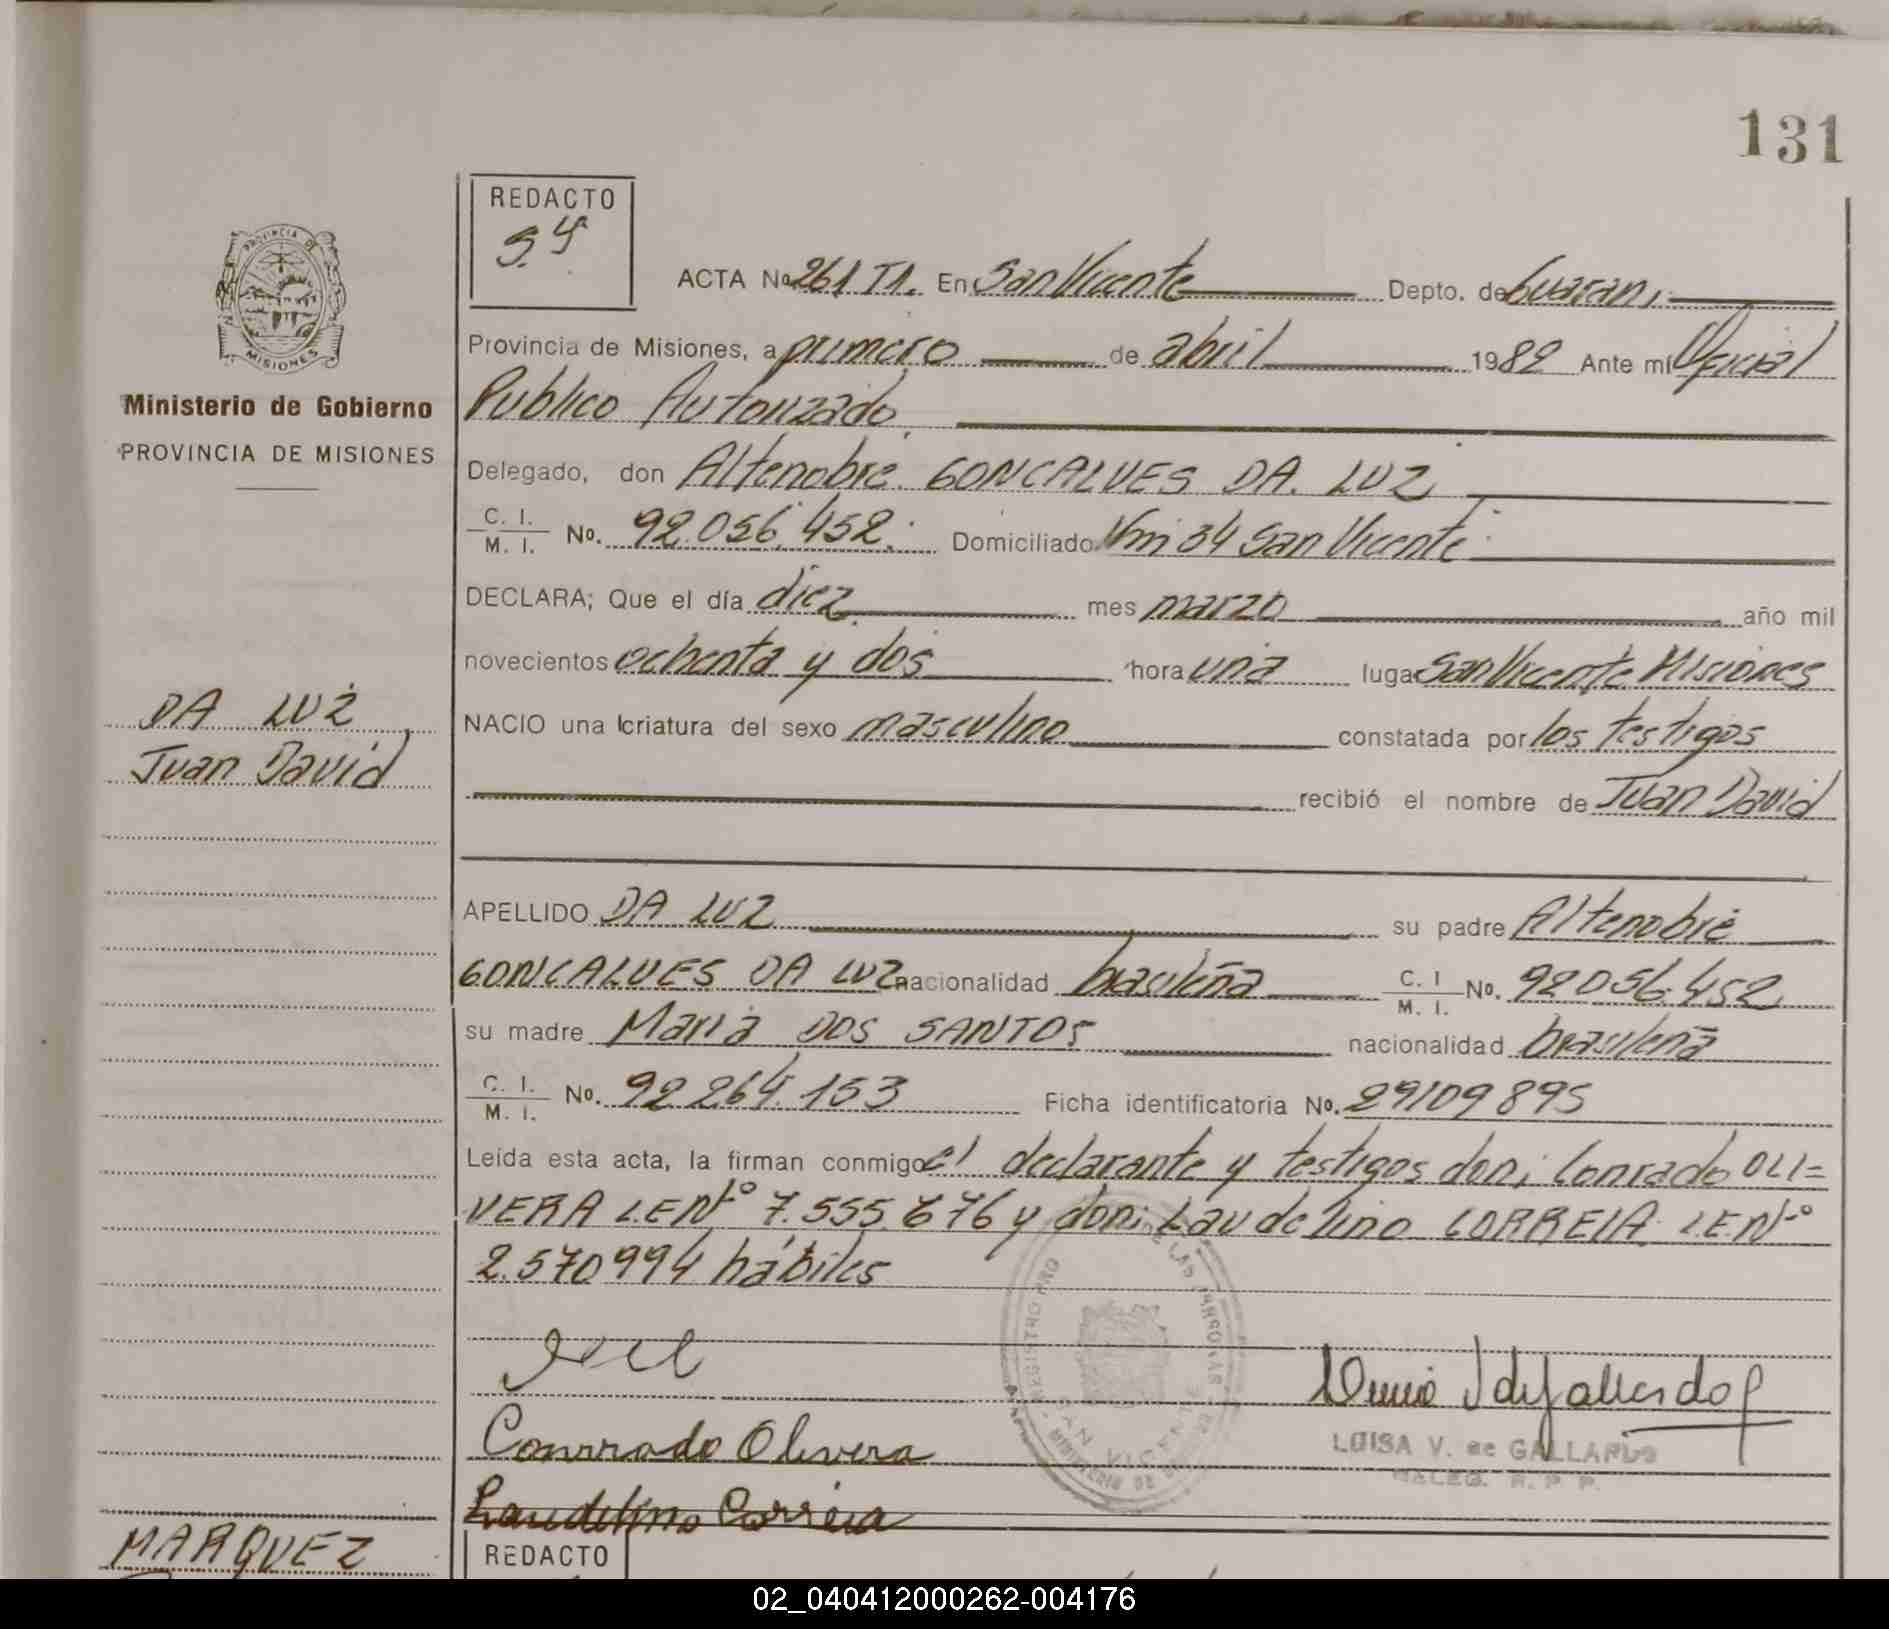 131
REDACTO
S.Y
PROVINCIA DE
MISIONES
Ministerio de Gobierno
PROVINCIA DE MISIONES
ACTA No 261 T1. En San Vicente Depto. de Guarani
Provincia de Misiones, a primero de abril 1982 Ante mi Oficial
Publico Autorizado
Delegado, don Altenobre GONCALVES DA LUZ
C. I. / M. I. No. 92.056.452. Domiciliado Km 34 San Vicente
DECLARA; Que el día diez mes marzo año mil
novecientos ochenta y dos hora una lugar San Vicente Misiones
NACIO una criatura del sexo masculino constatada por los testigos
recibió el nombre de Juan David
DA LUZ
Juan David
APELLIDO DA LUZ su padre Altenobre
GONCALVES DA LUZ nacionalidad brasileña C. I / M. I. No. 92056.452
su madre Maria DOS SANTOS nacionalidad brasileña
C. I. / M. I. No. 92 264.153 Ficha identificatoria No. 29109895
Leída esta acta, la firman conmigo el declarante y testigos don; Conrado OLI=
VERA L.E Nº 7.555.676 y don; Laudelino CORREIA L.E.Nº
2.570994 hábiles
Conrrado Olivera
Laudelino Correia
LUISA V. de GALLARDO
R. P. P.
SAN VICENTE
MARQUEZ
REDACTO
02_040412000262-004176